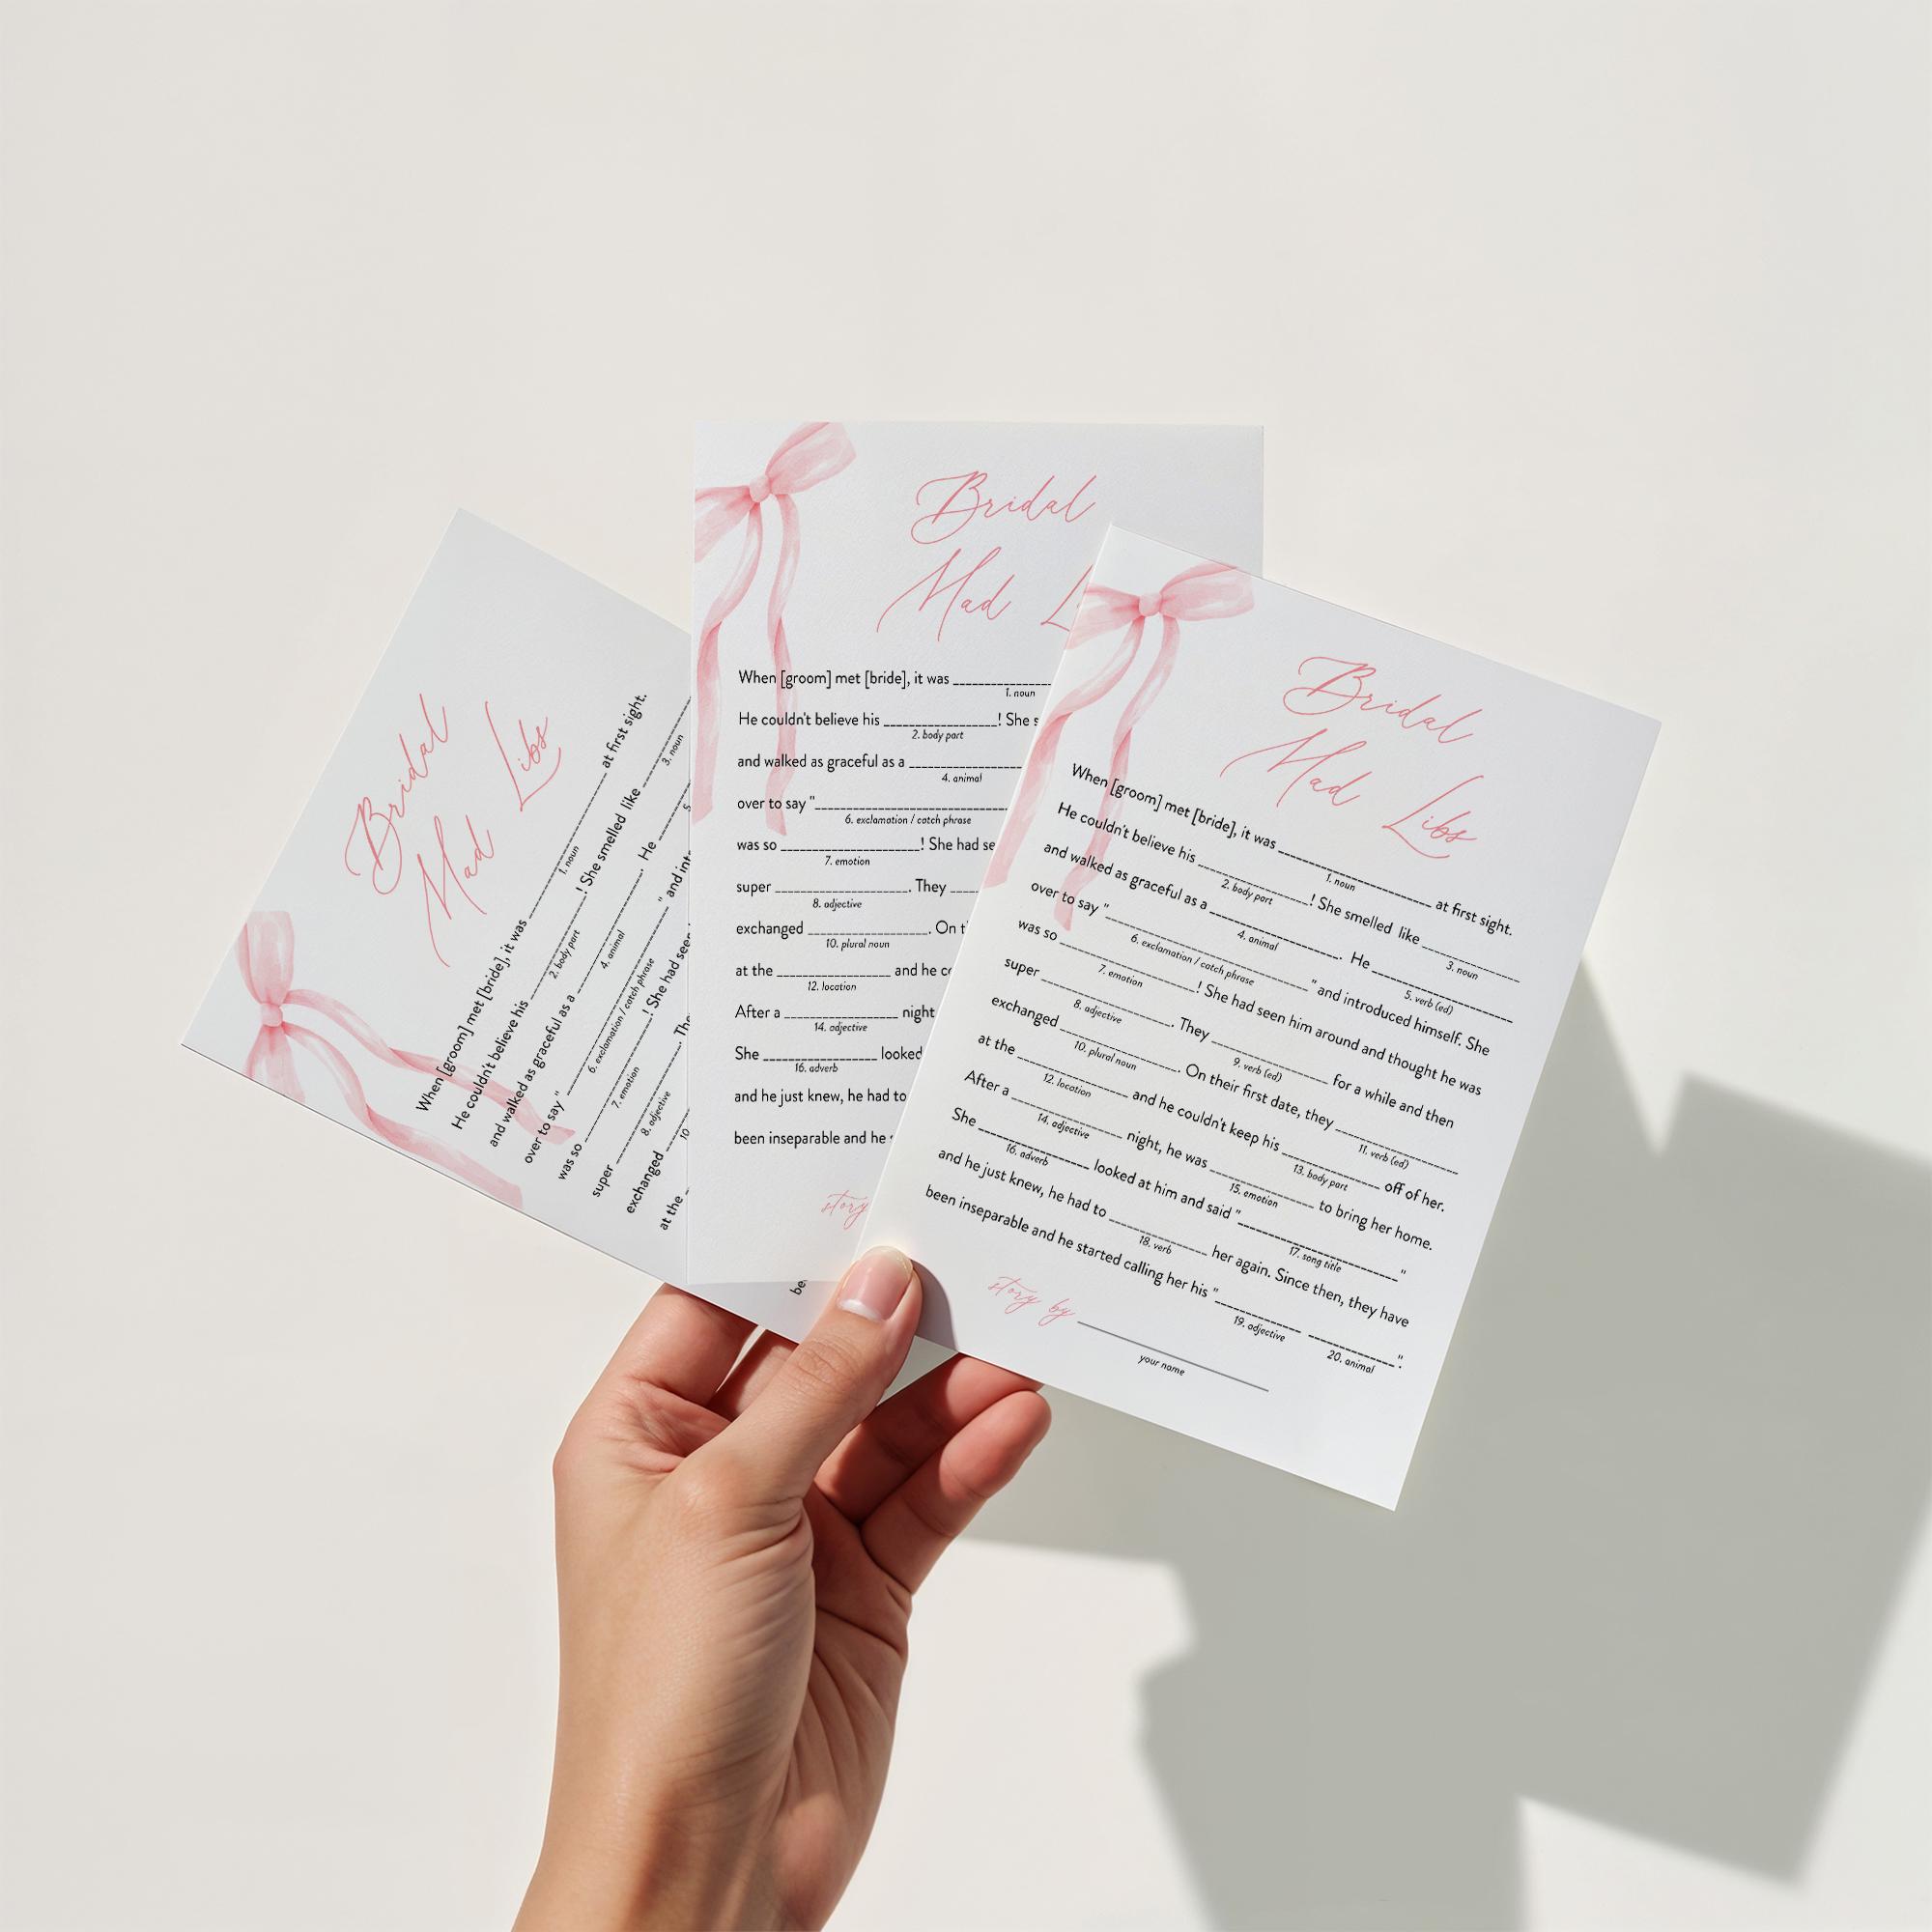 Bridal
Mad Libs
When [groom] met [bride], it was ____________ at first sight.
1. noun
He couldn't believe his ____________! She smelled like ____________
2. body part 3. noun
and walked as graceful as a ____________. He ____________
4. animal 5. verb (ed)
over to say "____________" and introduced himself. She
6. exclamation / catch phrase
was so ____________! She had seen
7. emotion
super
8. adjective
exchanged
10
at the
be
Bridal
Mad L
When [groom] met [bride], it was ____________
1. noun
He couldn't believe his ____________! She s
2. body part
and walked as graceful as a ____________
4. animal
over to say "____________
6. exclamation / catch phrase
was so ____________! She had se
7. emotion
super ____________. They ____
8. adjective
exchanged ____________. On t
10. plural noun
at the ____________ and he co
12. location
After a ____________ night
14. adjective
She ____________ looked
16. adverb
and he just knew, he had to
been inseparable and he s
story
Bridal
Mad Libs
When [groom] met [bride], it was ____________ at first sight.
1. noun
He couldn't believe his ____________! She smelled like ____________
2. body part 3. noun
and walked as graceful as a ____________. He ____________
4. animal 5. verb (ed)
over to say "____________" and introduced himself. She
6. exclamation / catch phrase
was so ____________! She had seen him around and thought he was
7. emotion
super ____________. They ____________ for a while and then
8. adjective 9. verb (ed)
exchanged ____________. On their first date, they ____________
10. plural noun 11. verb (ed)
at the ____________ and he couldn't keep his ____________ off of her.
12. location 13. body part
After a ____________ night, he was ____________ to bring her home.
14. adjective 15. emotion
She ____________ looked at him and said "____________"
16. adverb 17. song title
and he just knew, he had to ____________ her again. Since then, they have
18. verb
been inseparable and he started calling her his "____________ ____________".
19. adjective 20. animal
story by ____________
your name